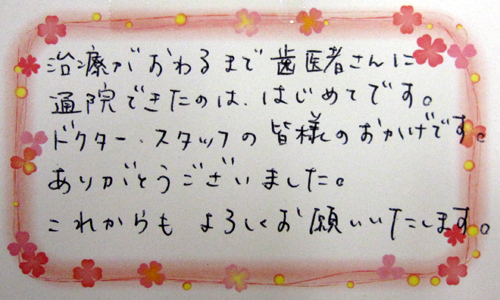 治療がおわるまで歯医者さんに
通院できたのは、はじめてです。
ドクター、スタッフの皆様のおかげです。
ありがとうございました。
これからもよろしくお願いいたします。